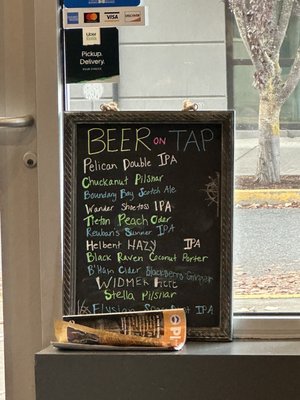 VISA
Uber
Pickup.
Delivery.
BEER ON TAP
Pelican Double IPA
Chuckanut Pilsnar
Boundary Bay Scotch Ale
Wander Shoetoss IPA
Tieton Peach Cider
Reuban's Summer IPA
Helbent HAZY IPA
Black Raven Coconut Porter
Cider Blackberry
WIDMER Hefe
Stella Pilsnar
Elysian IPA